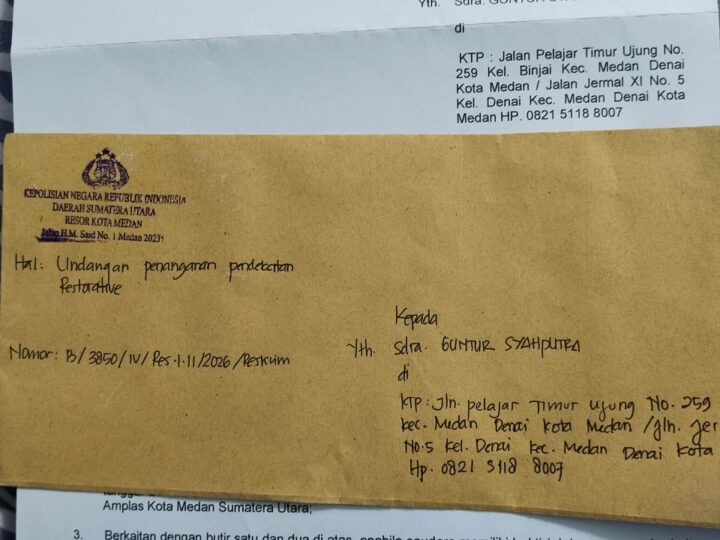 Yth. Sdra. GUNTUR
di
KTP : Jalan Pelajar Timur Ujung No.
259 Kel. Binjai Kec. Medan Denai
Kota Medan / Jalan Jermal XI No. 5
Kel. Denai Kec. Medan Denai Kota
Medan HP. 0821 5118 8007
KEPOLISIAN NEGARA REPUBLIK INDONESIA
DAERAH SUMATERA UTARA
RESOR KOTA MEDAN
Jalan H.M. Said No. 1 Medan 2023
Hal: Undangan penanganan pendekatan
Restorative
Nomor: B/3850/IV/Res.1.11/2026/Reskrim
Kepada
Yth. Sdra. GUNTUR SYAHPUTRA
di
KTP: Jln. pelajar Timur ujung No. 259
kec. Medan Denai kota Medan /Jln. Jer
No.5 kel. Denai kec. Medan Denai Kota
Hp. 0821 5118 8007
Amplas Kota Medan Sumatera Utara;
3. Berkaitan dengan butir satu dan dua di atas,